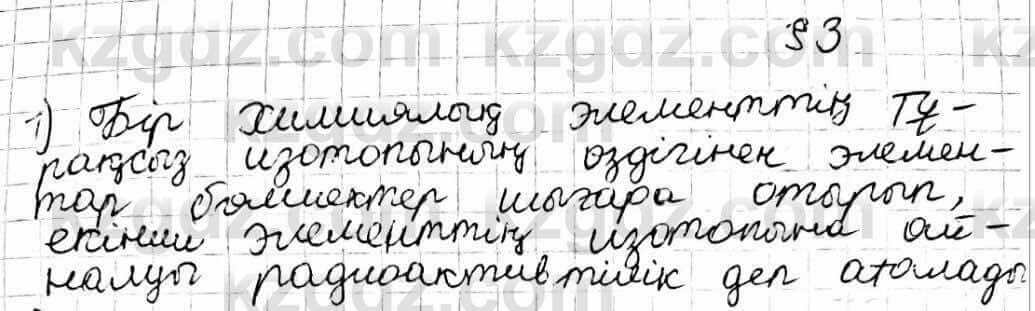 §3
1) Бір химиялық элементтің тұ-
рақсыз изотопының өздігінен элемен-
тар бөлшектер шығара отырып,
екінші элементтің изотопына ай-
налуы радиоактивтілік деп аталады